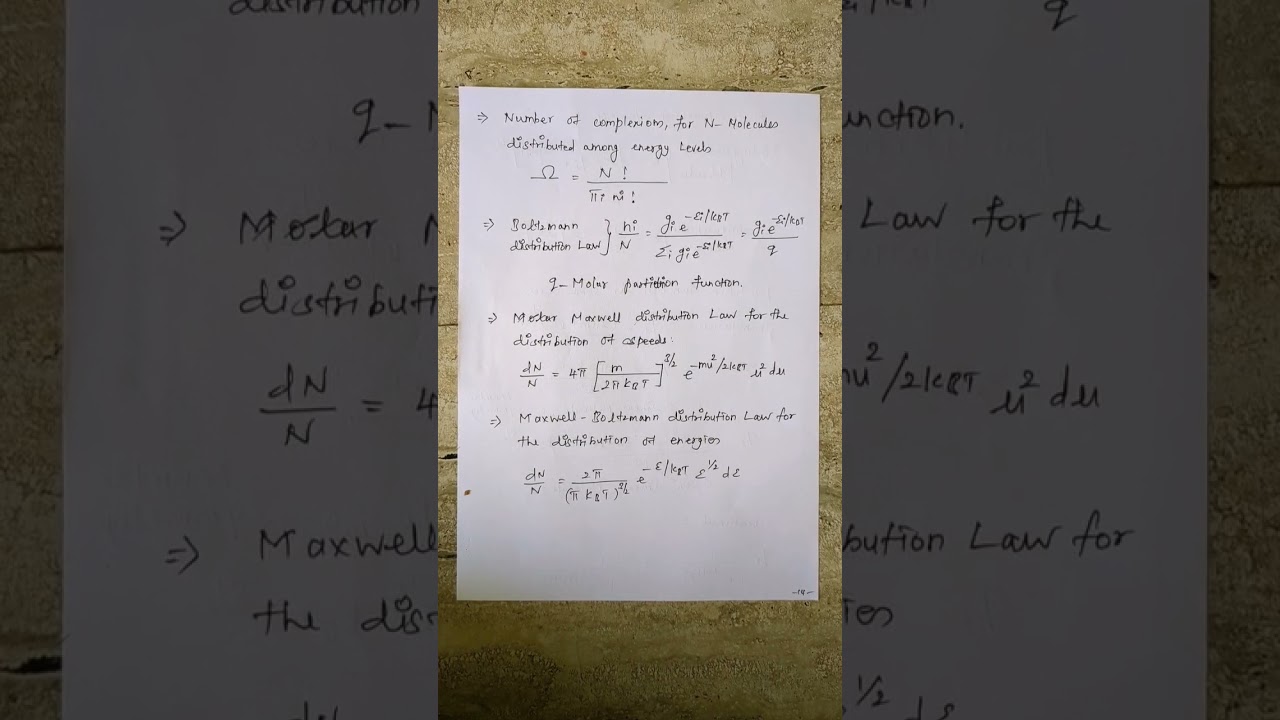 ⇒ Number of complexions, for N- Molecules
distributed among energy Levels
Ω = N! / πi ni!
⇒ Boltzmann distribution Law } ni/N = gi e^-εi/kBT / Σi gi e^-εi/kBT = gi e^-εi/kBT / q
q- Molar partition function.
⇒ Molar Maxwell distribution Law for the
distribution of speeds:
dN/N = 4π [m / 2π kBT]^3/2 e^-mu²/2kBT u² du
⇒ Maxwell-Boltzmann distribution Law for
the distribution of energies
dN/N = 2π / (π kBT)^3/2 e^-ε/kBT ε^1/2 dε
-14-